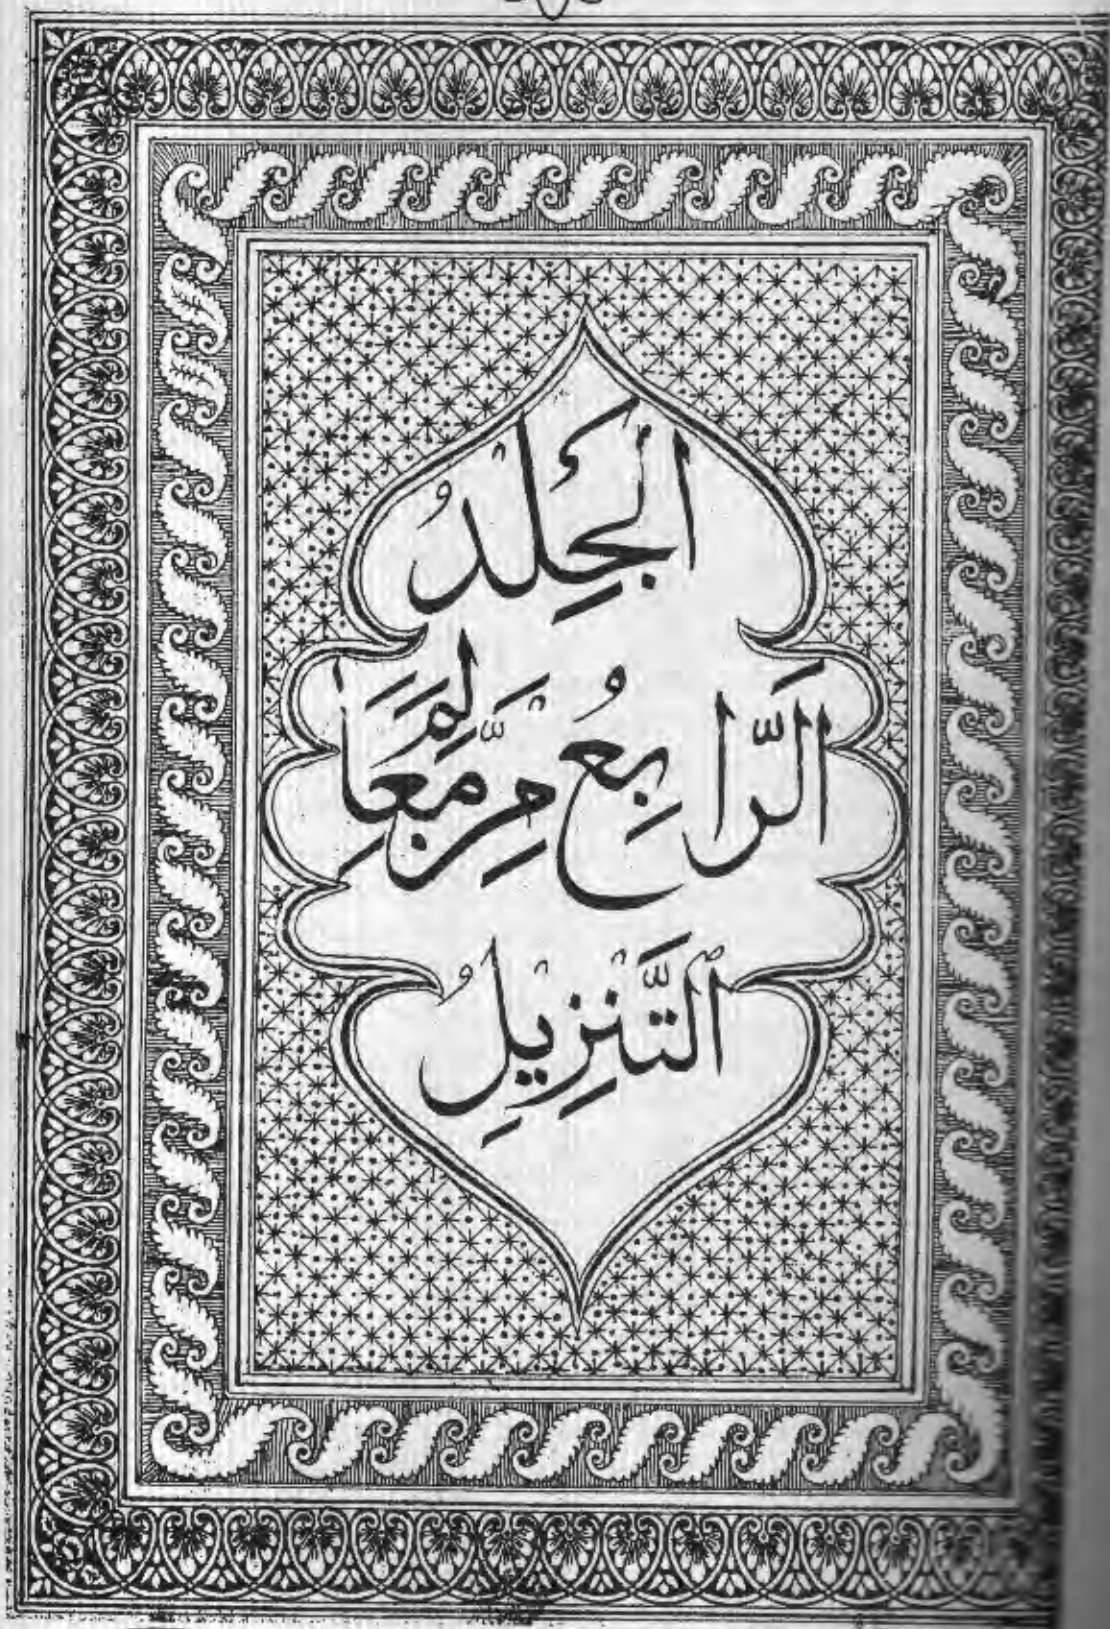 الجِلدُ
الرَّابِعُ مِن مَّعَالِمِ
التَّنْزِيلِ